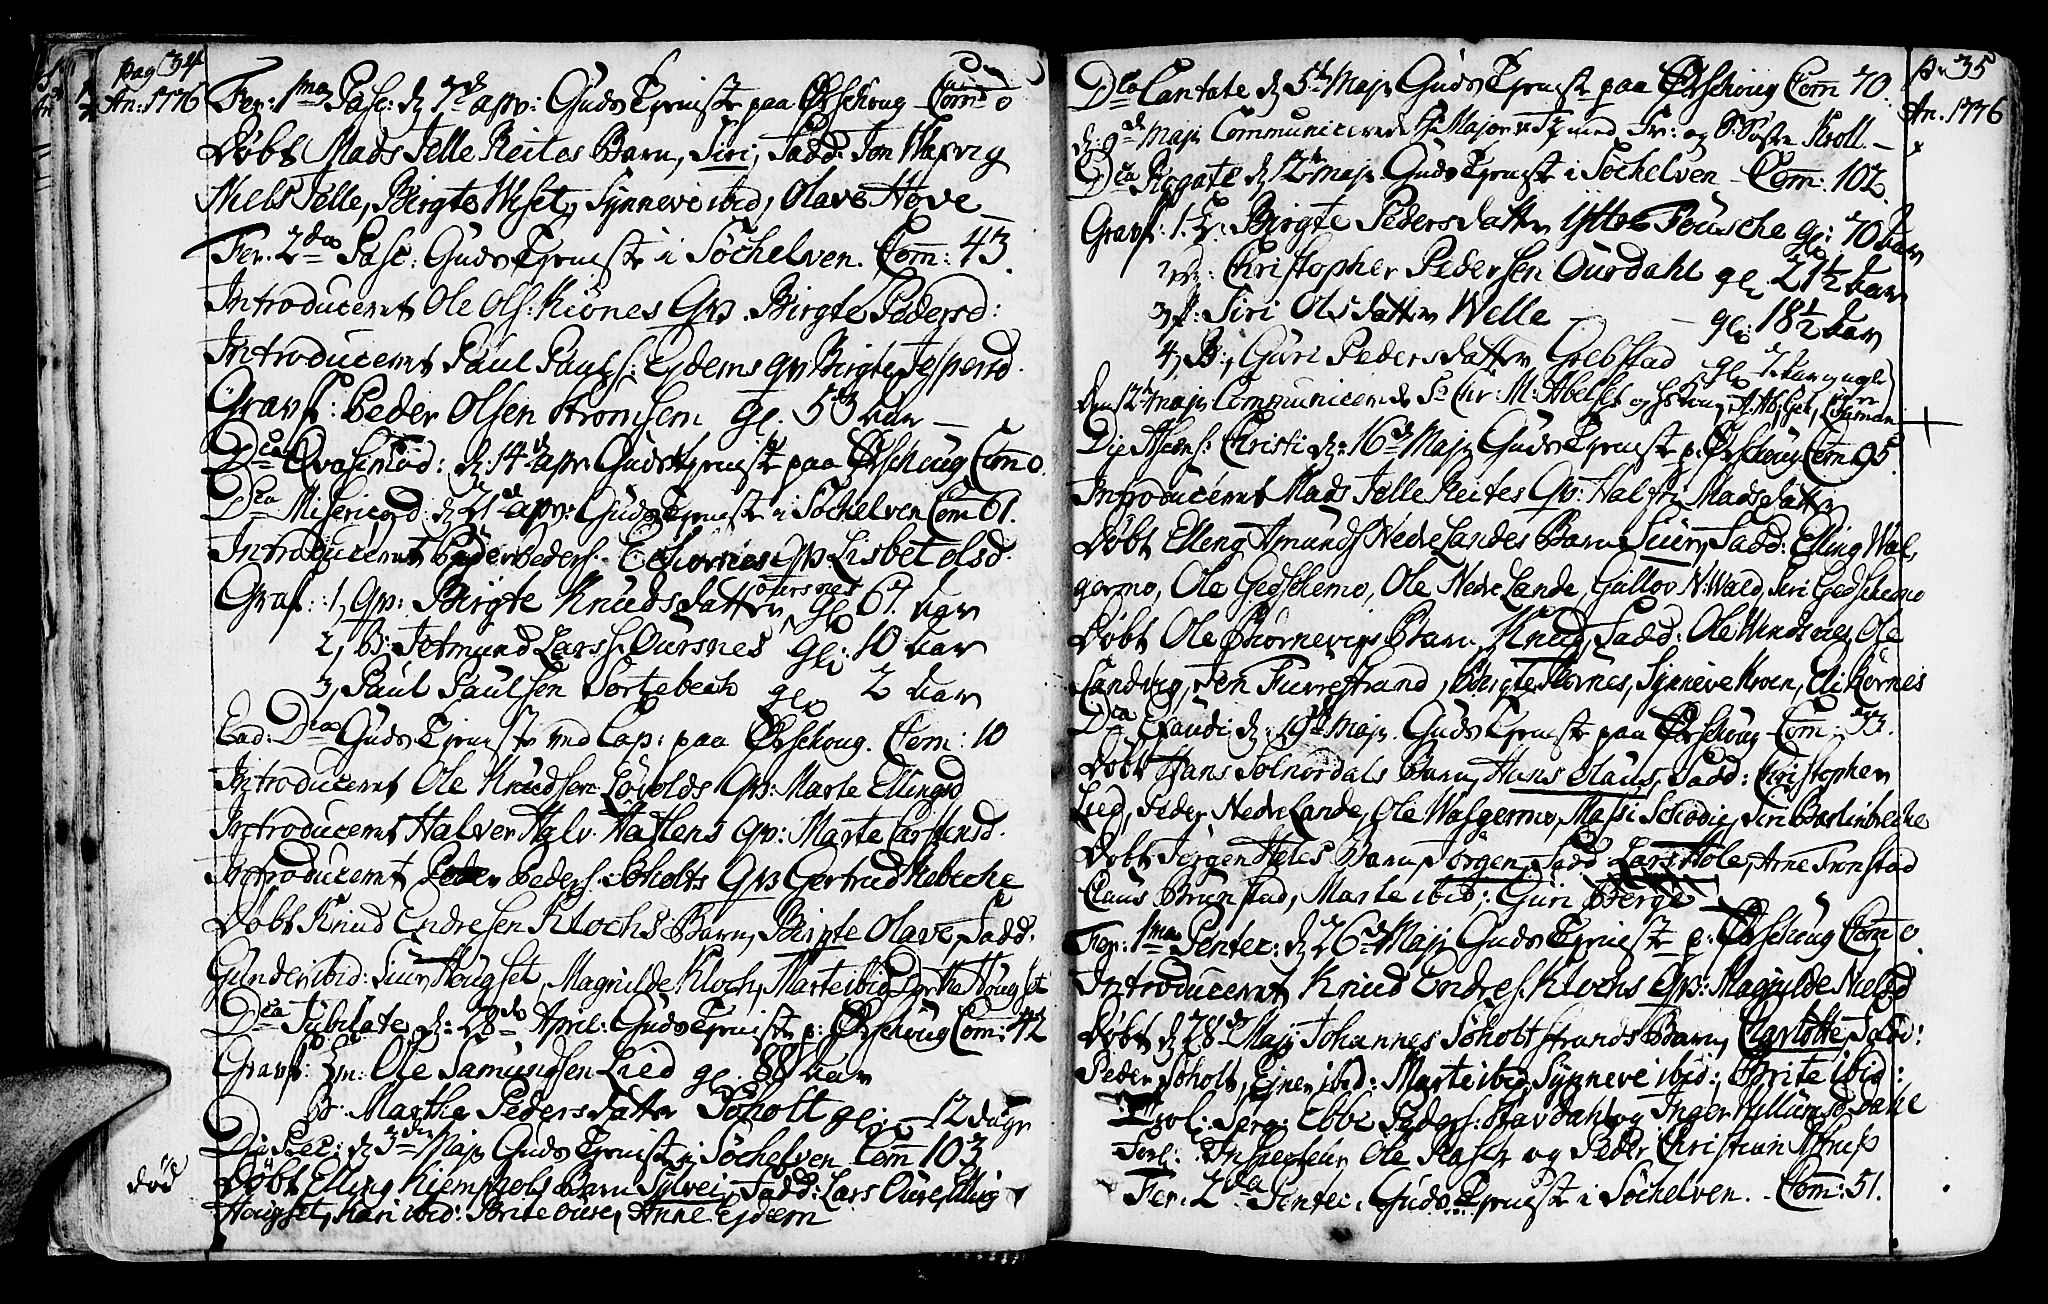 Pag 34
An: 1776
Fer: 1ma Pasc: d 7de apr: Guds Tjeniste paa Ørschoug Com: 0
Døbt Mads Jelle Reites Barn, Siri, Fadd: Jon
Niels Jelle, Birgte Weset, Synneve ibid, Olave Hove
Fer. 2da Pasc: Guds Tjeniste i Søchelven. Com: 43.
Introduceret Ole Ols: Kiønes Qv. Birgte Pedersd:
Introduceret Paul Pauls: Ejdems qv Birgte Jespersd.
Gravf: Peder Olsen Strømsem gl. 53 aar
Dca Qvasimod: d: 14de apr Guds Tjeniste paa Ørschoug Com 0.
Dca Misericord: d 21de apr: Guds Tjeniste i Søchelven Com 61.
Introduceret Peder Peders: Qv Lisbet olsd.
Graf: 1, Qv: Birgte Knudsdatter Oursnes gl 67 aar
2, B: Jetmund Larss: Oursnes gl: 10 aar
3, Paul Paulsen Sortebech gl 2 aar
Ead: Dca Guds Tjeniste ved Cap: paa Ørschoug. Com: 10
Introduceret Ole Knudsen Løvolds Qv: Marte Ellingsd
Introduceret Halver Halv: Hatlens qv: Marte Carstensd.
Introduceret Peder Peders: Søholts Qv Gertrud
Døbt Knud Endresen Klochs Barn, Birgte Olave, Fadd:
Gunder ibid: Siur Hougset, Magnilde Kloch, Marte ibid, Dorthe Hougset
Dca Jubilate d: 28de April: Guds Tjeniste p: Ørschoug Com: 42
Gravf: Ole Samundsen Lied gl: 88 aar
B: Marthe Pedersdatter Søholt gl: 12 dage
Die Prec: d 3die Maj Guds Tjeniste i Søchelven Com 103
død
Døbt Elling Kiemphols Barn Sylvei, Fadd: Lars Oure, Elling
Hougset, Kari ibid: Brite Oure, Anne Ejdem
P: 35
An. 1776
Dca Cantate d 5te Maj Guds Tjeniste paa Ørschoug Com 70.
d: 9de Maj Communicerede Major med Fr: og S: Søster Kroll.
Dca Rogate d 12te Maj Guds Tjeniste i Søchelven Com: 102.
Gravf: 1. Birgte Pedersdatter Yttre Fousche gl: 70 aar
2, Christopher Pedersen Ourdahl gl 21½ aar
3, P: Siri Olsdatter Welle gl: 18½ aar
4, B: Guri Pedersdatter Grebstad gl 7 aar
Den 12te Maj Communicerede Sr Chr: M: Abelset og hustrue
Die Ascens: Christi d: 16de Maj Guds Tjeniste p: Ørschoug Com 95.
Introduceret Mads Jelle Reites Qv: Halfri Madsdatter
Døbt Elling Amunds Nedrelandes Barn Siur, Fadd: Elling Wal-
germo, Ole Gedschemo, Ole Nedrelande, Gullov N: Wold, Siri Gedschemo
Døbt Ole Biørnevigs Barn, Knud, Fadd: Ole Windsnes, Ole
Sandvig, Jen Furrestrand, Birgte Kornes, Synneve Kroen, Eli Kornes
Dca Exaudi d: 19de Maj. Guds Tjeniste paa Ørschoug Com: 33.
Døbt Hans Solnørdals Barn, Hans Claus, Fadd: Christopher
Lied, Peder Nedrelande, Ole Walgermo, Massi Schodie, Siri
Døbt Jørgen Heles Barn Jørgen, Fadd Lars Hole, Arne Tronstad
Claus Brunstad, Marte ibid; Guri Berge
Fer: 1ma Pentec: d 26de Maj Guds Tjeniste p: Ørschoug Com 0.
Introduceret Knud Endres: Klochs Qv: Magnilde Nielsd
Døbt d 28de Maj Johannes Søholtstrands Barn, Charlotte, Fadd:
Peder Søholt, Ejner ibid: Marte ibid, Synneve ibid:, Brite ibid:
Serg: Ebbe Peders: Stavdahl og Inger Dahle
Forl: Inspecteur Ole Rasch og Peder Christian Astrup
Fer: 2da Pentec: Guds Tjeniste i Søchelven. Com: 51.